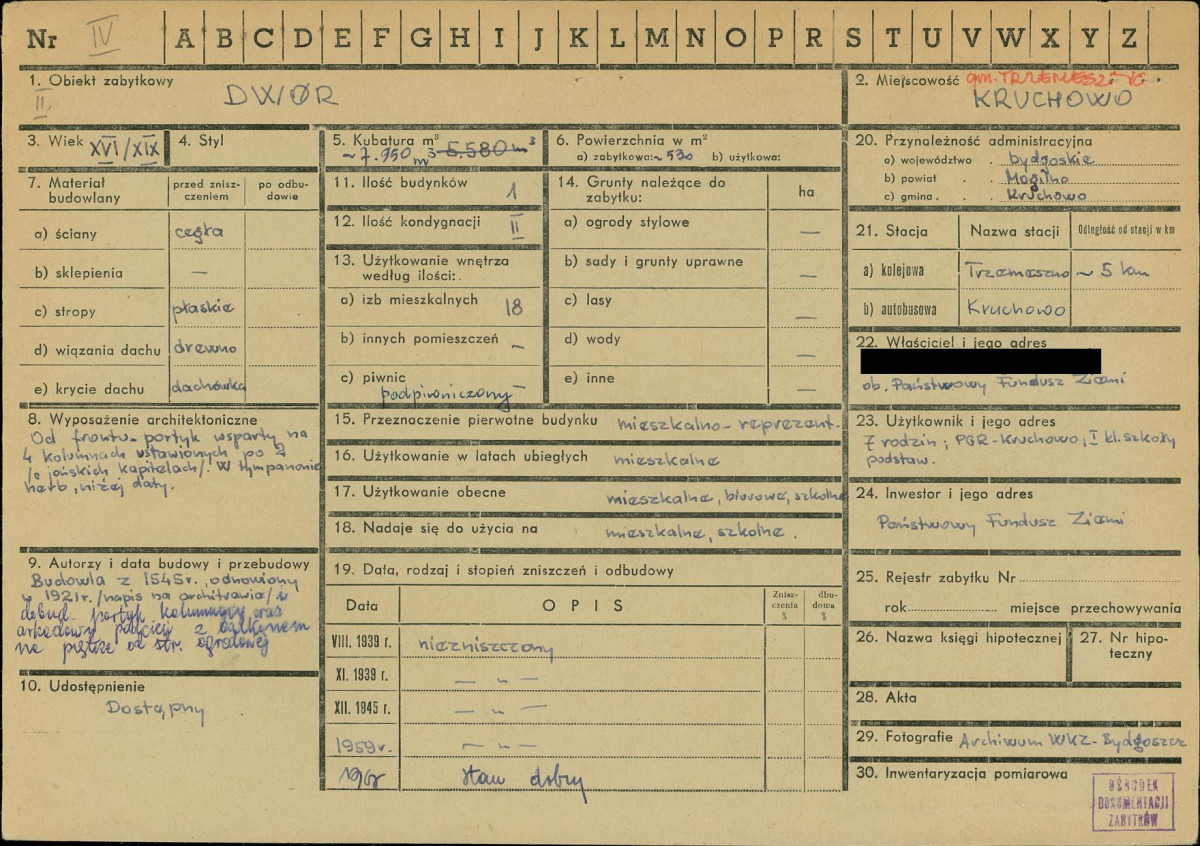 Nr IV A B C D E F G H I J K L M N O P R S T U V W X Y Z
1. Obiekt zabytkowy
II
DWÓR
2. Miejscowość gm. TRZEMESZNO
KRUCHOWO
3. Wiek XVI/XIX
4. Styl
5. Kubatura m³
~7.950 m³ 5.580 m³
6. Powierzchnia w m²
a) zabytkowa: ~530 b) użytkowa:
20. Przynależność administracyjna
a) województwo . bydgoskie
b) powiat . . Mogilno
c) gmina . . Kruchowo
7. Materiał budowlany
przed zniszczeniem
po odbudowie
a) ściany cegła
b) sklepienia —
c) stropy płaskie
d) wiązania dachu drewno
e) krycie dachu dachówka
11. Ilość budynków 1
12. Ilość kondygnacji II
13. Użytkowanie wnętrza
według ilości:
a) izb mieszkalnych 18
b) innych pomieszczeń –
c) piwnic
podpiwniczony
14. Grunty należące do
zabytku:
ha
a) ogrody stylowe —
b) sady i grunty uprawne —
c) lasy —
d) wody —
e) inne —
21. Stacja Nazwa stacji Odległość od stacji w km
a) kolejowa Trzemeszno ~ 5 km
b) autobusowa Kruchowo
22. Właściciel i jego adres
ob. Państwowy Fundusz Ziemi
8. Wyposażenie architektoniczne
Od frontu portyk wsparty na
4 kolumnach ustawionych po 2
/o jońskich kapitelach/. W tympanonie
herb, niżej daty.
15. Przeznaczenie pierwotne budynku mieszkalno-reprezent.
16. Użytkowanie w latach ubiegłych mieszkalne
17. Użytkowanie obecne mieszkalne, biurowe, szkolne
18. Nadaje się do użycia na mieszkalne, szkolne.
23. Użytkownik i jego adres
7 rodzin; PGR-Kruchowo, I kl. szkoły
podstaw.
24. Inwestor i jego adres
Państwowy Fundusz Ziemi
9. Autorzy i data budowy i przebudowy
Budowla z 1545r., odnowiony
w 1921r. /napis na architrawie/ i
dobud. portyk kolumnowy oraz
arkadowy podcień z balkonem
na piętrze od str. ogrodowej
10. Udostępnienie
Dostępny
19. Data, rodzaj i stopień zniszczeń i odbudowy
Data OPIS Zniszczenia % dbudowa %
VIII. 1939 r. niezniszczony
XI. 1939 r. — „ —
XII. 1945 r. — „ —
1959 r. — „ —
stan dobry
25. Rejestr zabytku Nr
rok miejsce przechowywania
26. Nazwa księgi hipotecznej
27. Nr hipoteczny
28. Akta
29. Fotografie Archiwum WKZ-Bydgoszcz
30. Inwentaryzacja pomiarowa
OŚRODEK
DOKUMENTACJI
ZABYTKÓW